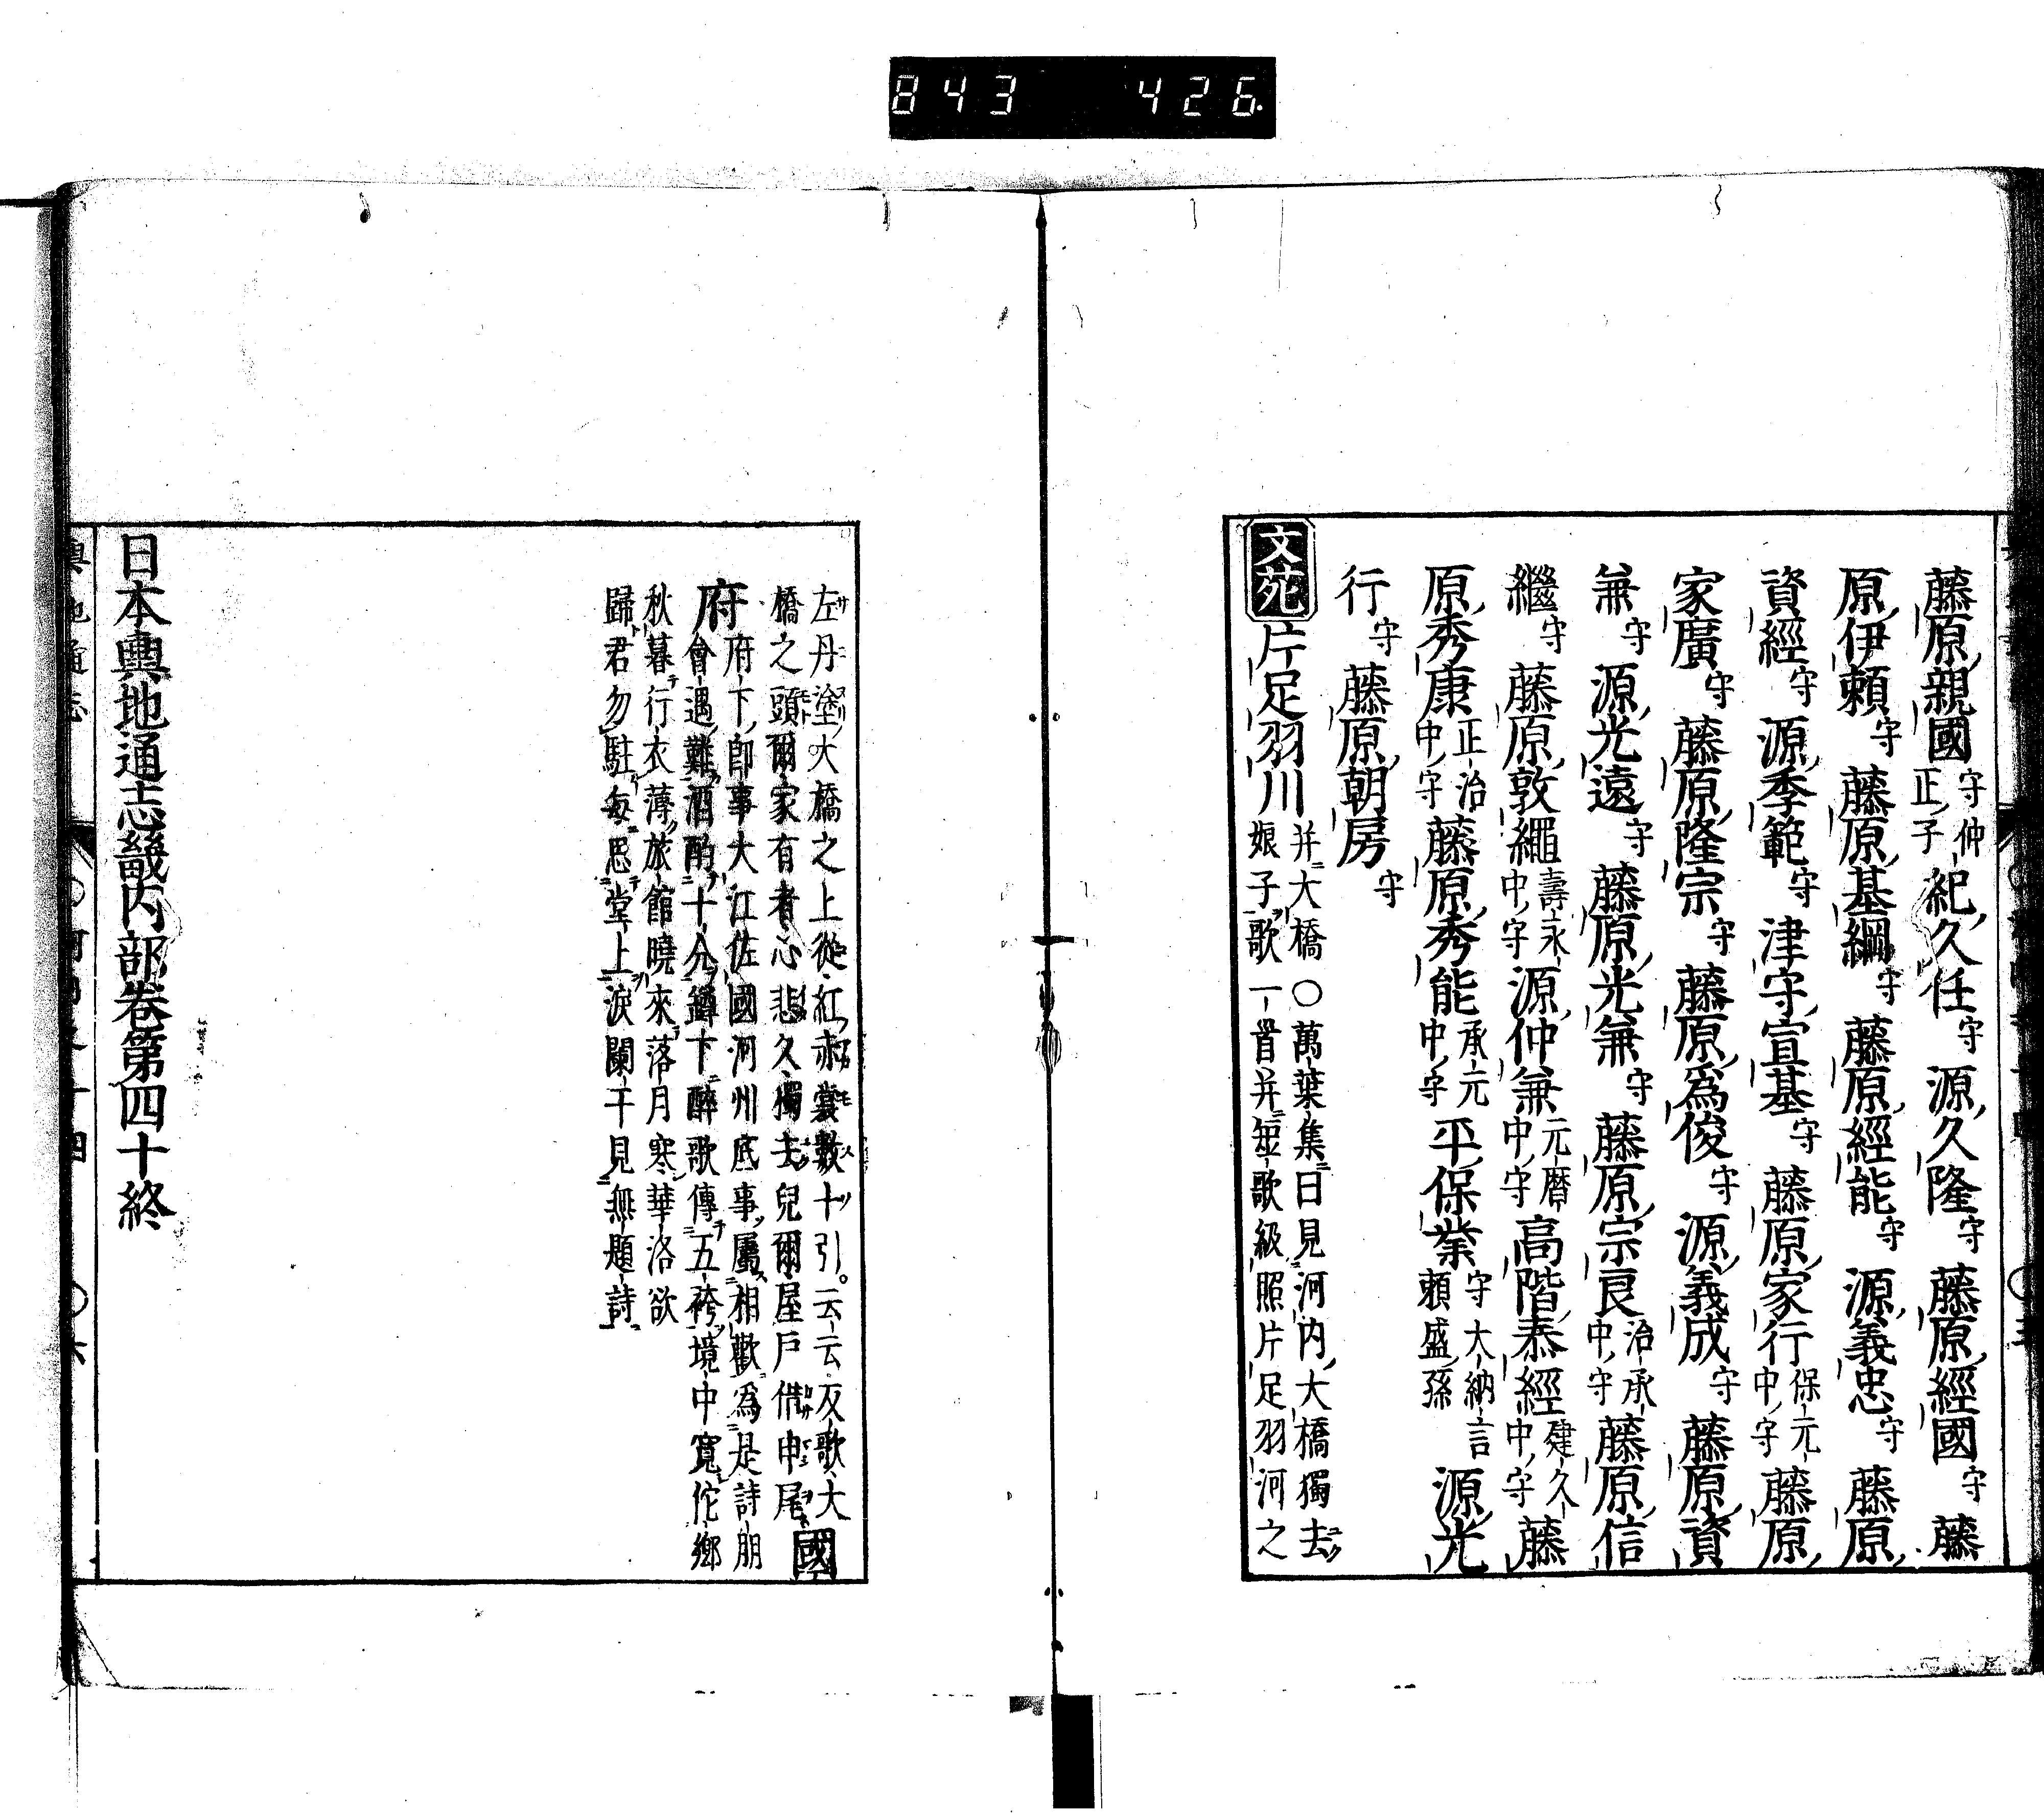 843 426
藤原親國守仲正子紀久任守源久隆守藤原經國守藤
原伊頼守藤原基綱守藤原經能守源義忠守藤原
資經守源季範守津守宣基守藤原家行保元中守藤原
家廣守藤原隆宗守藤原爲俊守源義成守藤原資
兼守源光遠守藤原光兼守藤原宗良治承中守藤原信
繼守藤原敦繩壽永中守源仲兼元暦中守高階泰經建久中守藤
原秀康正治中守藤原秀能承元中守平保業守大納言頼盛孫源光
行守藤原朝房守
文苑片足羽川并大橋〇萬葉集曰見河内大橋獨去
娘子歌一首并短歌級照片足羽河之
左丹塗大橋之上從紅赤裳數十引云云反歌大
橋之頭爾家有者心悲久獨去兒爾屋戸借申尾國
府府下即事大江佐國河州底事屬相歡爲是詩朋
會遇難酒酌十分鐏下醉歌傳五袴境中寬佗鄉
秋暮行衣薄旅館曉來落月寒華洛欲
歸君勿駐每思堂上淚闌干見無題詩
日本輿地通志畿内部卷第四十終
輿地通志